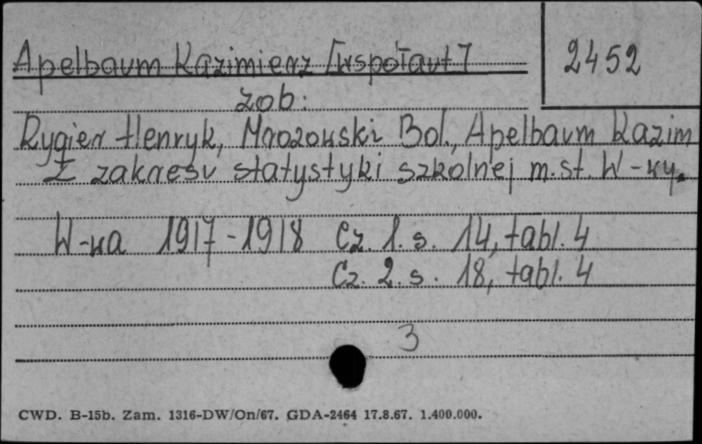 Apelbaum Kazimierz [współaut]
2452
zob:
Rygier Henryk, Mrozowski Bol., Apelbaum Kazim
Z zakresu statystyki szkolnej m.st. W-wy.
W-wa 1917-1918 Cz. 1. s. 14, tabl. 4
Cz. 2. s. 18, tabl. 4
3
CWD. B-15b. Zam. 1316-DW/On/67. GDA-2464 17.8.67. 1.400.000.